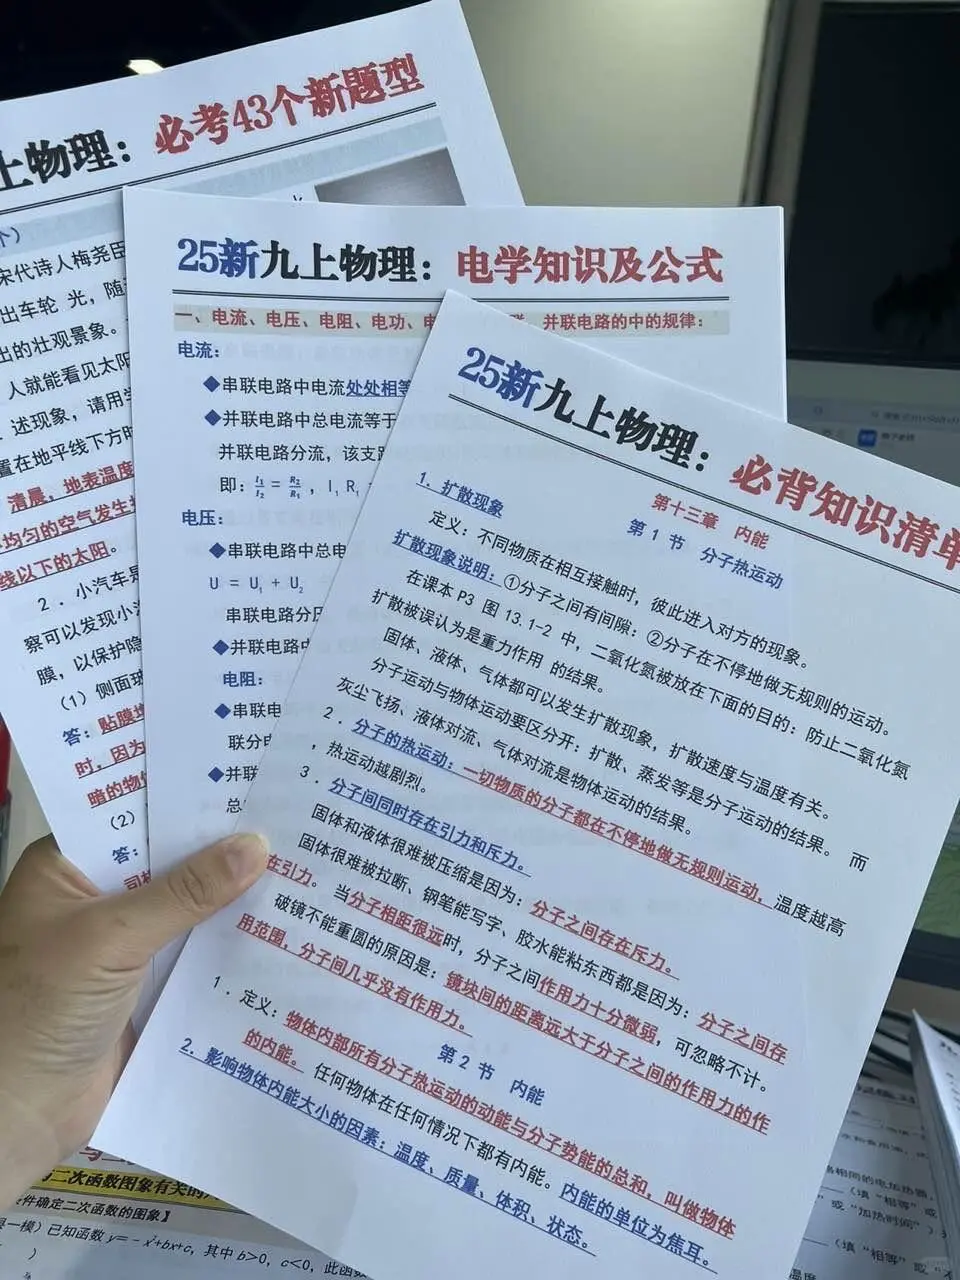 上物理：必考43个新题型
宋代诗人梅尧臣
出车轮 光，随
出的壮观景象。
人就能看见太阳
述现象，请用学
置在地平线下方时
清晨，地表温度
均匀的空气发生折
线以下的太阳。
2．小汽车是
察可以发现小汽
膜，以保护隐
（1）侧面玻
答：贴膜块
时，因为
暗的物
（2）
答：
司机
25新九上物理：电学知识及公式
一、电流、电压、电阻、电功、电 联、并联电路的中的规律：
电流：
◆串联电路中电流处处相等
◆并联电路中总电流等于
并联电路分流，该支路
即：I₁/I₂ = R₂/R₁，I₁R₁
电压：
◆串联电路中总电
U = U₁ + U₂
串联电路分压
◆并联电路中
电阻：
◆串联电
联分电
◆并联
总
25新九上物理：必背知识清单
第十三章 内能
第 1 节 分子热运动
1．扩散现象
定义：不同物质在相互接触时，彼此进入对方的现象。
扩散现象说明：①分子之间有间隙；②分子在不停地做无规则的运动。
在课本 P3 图 13.1-2 中，二氧化氮被放在下面的目的：防止二氧化氮
扩散被误认为是重力作用 的结果。
固体、液体、气体都可以发生扩散现象，扩散速度与温度有关。
分子运动与物体运动要区分开：扩散、蒸发等是分子运动的结果。 而
灰尘飞扬、液体对流、气体对流是物体运动的结果。
2．分子的热运动：一切物质的分子都在不停地做无规则运动，温度越高
，热运动越剧烈。
3．分子间同时存在引力和斥力。
固体和液体很难被压缩是因为：分子之间存在斥力。
固体很难被拉断、钢笔能写字、胶水能粘东西都是因为：分子之间存
在引力。当分子相距很远时，分子之间作用力十分微弱，可忽略不计。
破镜不能重圆的原因是：镜块间的距离远大于分子之间的作用力的作
用范围，分子间几乎没有作用力。
第 2 节 内能
1．定义：物体内部所有分子热运动的动能与分子势能的总和，叫做物体
的内能。 任何物体在任何情况下都有内能。内能的单位为焦耳。
2．影响物体内能大小的因素：温度、质量、体积、状态。
二次函数图象有关的
件确定二次函数的图象】
一模）已知函数 y=-x²+bx+c，其中 b>0，c<0，此函
）
相同的电加热器，
（填“相等”或
或“加热时间”）
（填“相等”或“不
温度